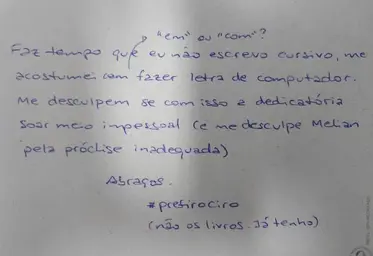 "em" ou "com"?
Faz tempo que eu não escrevo cursivo, me
acostumei com fazer letra de computador.
Me desculpem se com isso a dedicatória
soar meio impessoal (e me desculpe Melian
pela próclise inadequada)
Abraços.
#prefirociro
(não os livros. Já tenho)